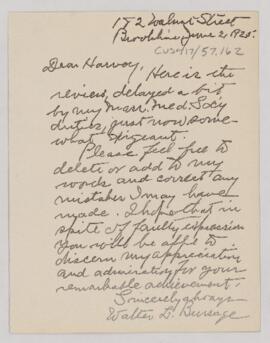 182 Walnut Street
Brookline June 2, 1925.
CUS417/57.162
Dear Harvey, Here is the
review, delayed a bit
by my Mass. Med. Socy
duties, just now some-
what exigeant.
Please feel free to
delete or add to my
words and correct any
mistakes I may have
made. I hope that in
spite of faulty expression
you will be able to
discern my appreciation
and admiration for your
remarkable achievement.
Sincerely always
Walter L. Burrage